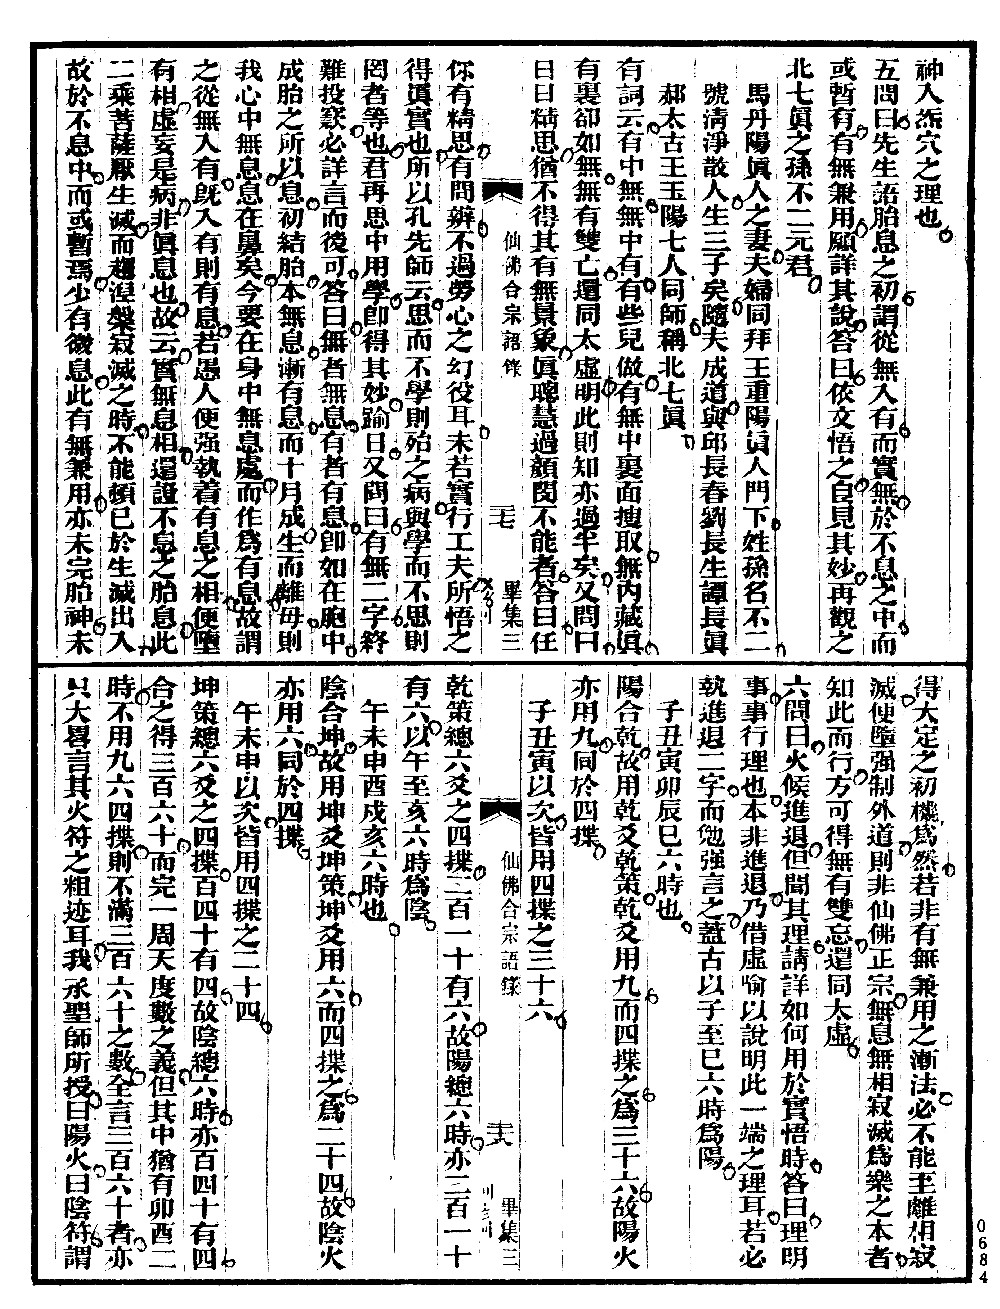 神入炁穴之理也
五問曰先生語胎息之初謂從無人有而實無於不息之中而
或暫有有無兼用願詳其說答曰依文悟之自見其妙再觀之
北七眞之孫不二元君
馬丹陽眞人之妻夫婦同拜王重陽眞人門下姓孫名不二
號清淨散人生三子矣隨夫成道與邱長春劉長生譚長眞
郝太古王玉陽七人同師稱北七眞
有詞云有中無無中有有些兒做有無中裏面搜取無內藏眞
有裏卻如無無有雙亡還同太虛明此則知亦過半矣又問曰
日日精思猶不得其有無景象眞聰慧過顏閔不能者答曰任
仙佛合宗語錄
三七
畢集三
你有精思有問辨不過勞心之幻役耳未若實行工夫所悟之
得眞實也所以孔先師云思而不學則殆之病與學而不思則
罔者等也君再思中用學卽得其妙踰日又問曰有無二字終
難投竅必詳言而後可答曰無者無息有者有息卽如在胞中
成胎之所以息初結胎本無息漸有息而十月成生而離母則
我心中無息息在鼻矣今要在身中無息處而作爲有息故謂
之從無人有旣入有則有息若愚人便强執着有息之相便墮
有相虛妄是病非眞息也故云實無息相還證不息之胎息此
二乘菩薩厭生滅而趨湼槃寂滅之時不能頓已於生滅出入
故於不息中而或暫焉少有微息此有無兼用亦未完胎神未
得大定之初機爲然若非有無兼用之漸法必不能至離相寂
滅便墮强制外道則非仙佛正宗無息無相寂滅爲樂之本者
知此而行方可得無有雙忘還同太虛
六問曰火候進退但聞其理請詳如何用於實悟時答曰理明
事事行理也本非進退乃借虛喻以說明此一端之理耳若必
執進退二字而勉强言之蓋古以子至巳六時爲陽
子丑寅卯辰巳六時也
陽合乾故用乾爻乾策乾爻用九而四揲之爲三十六故陽火
亦用九同於四揲
子丑寅以次皆用四揲之三十六
仙佛合宗語錄
三八
畢集三
乾策總六爻之四揲二百一十有六故陽總六時亦二百一十
有六以午至亥六時爲陰
午未申酉戌亥六時也
陰合坤故用坤爻坤策坤爻用六而四揲之爲二十四故陰火
亦用六同於四揲
午未申以次皆用四揲之二十四
坤策總六爻之四揲百四十有四故陰總六時亦百四十有四
合之得三百六十而完一周天度數之義但其中猶有卯酉二
時不用九六四揲則不滿三百六十之數全言三百六十者亦
只大畧言其火符之粗迹耳我承聖師所授曰陽火曰陰符謂
0684